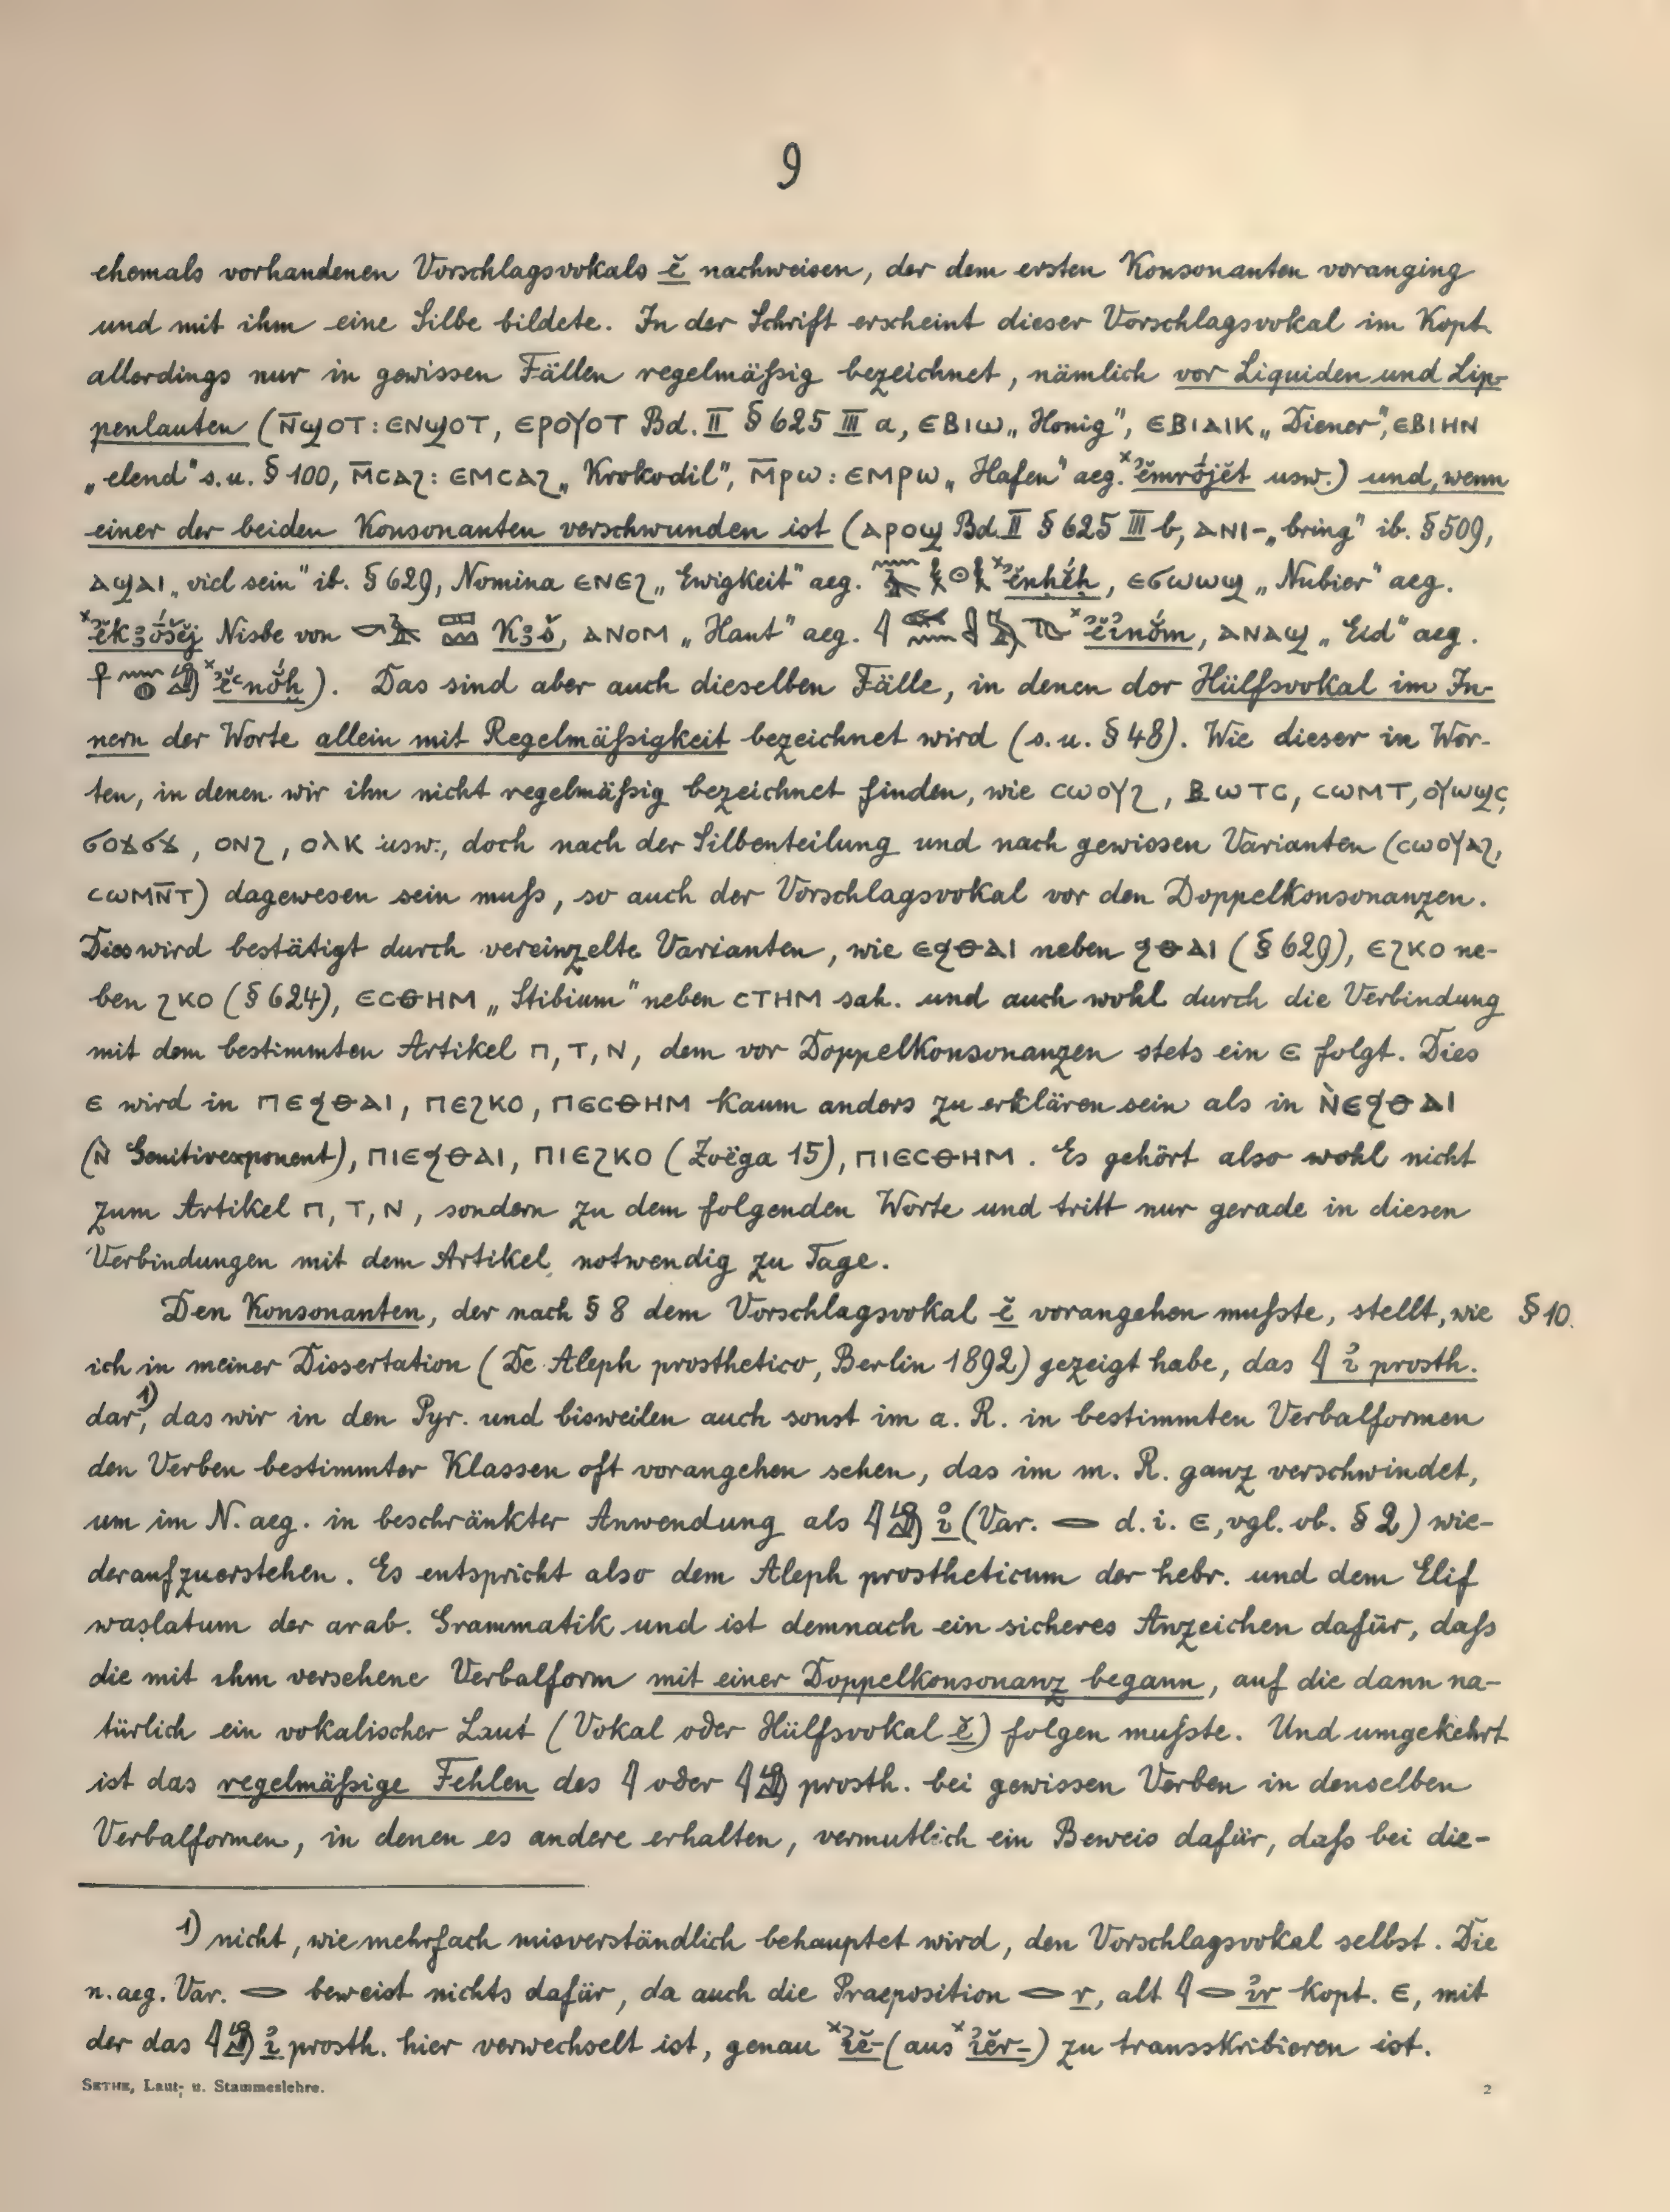 9
ehemals vorhandenen Vorschlagsvokals ĕ nachweisen, der dem ersten Konsonanten voranging
und mit ihm eine Silbe bildete. In der Schrift erscheint dieser Vorschlagsvokal im Kopt.
allerdings nur in gewissen Fällen regelmäßig bezeichnet, nämlich vor Liquiden und Lip-
penlauten (ⲛ̄ϣⲟⲧ: ⲉⲛϣⲟⲧ, ⲉⲣⲟⲩⲟⲧ Bd. II § 625 III a, ⲉⲃⲓⲱ „Honig", ⲉⲃⲓⲁⲓⲕ „Diener", ⲉⲃⲓⲏⲛ
„elend" s. u. § 100, ⲙ̄ⲥⲁϩ: ⲉⲙⲥⲁϩ „Krokodil", ⲙ̄ⲣⲱ: ⲉⲙⲣⲱ „Hafen" aeg. ˣꜣĕmrójĕt usw.) und, wenn
einer der beiden Konsonanten verschwunden ist (ⲁⲣⲟϣ Bd. II § 625 III b, ⲁⲛⲓ- „bring" ib. § 509,
ⲁϣⲁⲓ „viel sein" ib. § 629, Nomina ⲉⲛⲉϩ „Ewigkeit" aeg. ˣꜣĕnḥĕ́ḥ, ⲉϭⲱⲱϣ „Nubier" aeg.
ˣꜣĕkꜣóšĕj Nisbe von Kꜣš, ⲁⲛⲟⲙ „Haut" aeg. ˣꜣĕꞽnŏ́m, ⲁⲛⲁϣ „Eid" aeg.
ˣꜣĕꜥnŏ́ḫ). Das sind aber auch dieselben Fälle, in denen der Hülfsvokal im In-
nern der Worte allein mit Regelmäßigkeit bezeichnet wird (s. u. § 48). Wie dieser in Wor-
ten, in denen wir ihn nicht regelmäßig bezeichnet finden, wie ⲥⲱⲟⲩϩ, ⲃⲱⲧⲥ, ⲥⲱⲙⲧ, ⲟⲩⲱϣⲥ,
ϭⲟϫϭϫ, ⲟⲛϩ, ⲟⲗⲕ usw., doch nach der Silbenteilung und nach gewissen Varianten (ⲥⲱⲟⲩⲁϩ,
ⲥⲱⲙⲛ̄ⲧ) dagewesen sein muß, so auch der Vorschlagsvokal vor den Doppelkonsonanzen.
Dies wird bestätigt durch vereinzelte Varianten, wie ⲉϥⲑⲁⲓ neben ϥⲑⲁⲓ (§ 629), ⲉϩⲕⲟ ne-
ben ϩⲕⲟ (§ 624), ⲉⲥⲑⲏⲙ „Stibium" neben ⲥⲧⲏⲙ sah. und auch wohl durch die Verbindung
mit dem bestimmten Artikel ⲡ, ⲧ, ⲛ, dem vor Doppelkonsonanzen stets ein ⲉ folgt. Dies
ⲉ wird in ⲡⲉϥⲑⲁⲓ, ⲡⲉϩⲕⲟ, ⲡⲉⲥⲑⲏⲙ kaum anders zu erklären sein als in ⲛ̀ⲉϥⲑⲁⲓ
(ⲛ̀ Genitivexponent), ⲡⲓⲉϥⲑⲁⲓ, ⲡⲓⲉϩⲕⲟ (Zoëga 15), ⲡⲓⲉⲥⲑⲏⲙ. Es gehört also wohl nicht
zum Artikel ⲡ, ⲧ, ⲛ, sondern zu dem folgenden Worte und tritt nur gerade in diesen
Verbindungen mit dem Artikel notwendig zu Tage.
Den Konsonanten, der nach § 8 dem Vorschlagsvokal ĕ vorangehen mußte, stellt, wie § 10.
ich in meiner Dissertation (De Aleph prosthetico, Berlin 1892) gezeigt habe, das 𓇋 ꞽ prosth.
dar,¹⁾ das wir in den Pyr. und bisweilen auch sonst im a. R. in bestimmten Verbalformen
den Verben bestimmter Klassen oft vorangehen sehen, das im m. R. ganz verschwindet,
um im N. aeg. in beschränkter Anwendung als 𓇋𓀁 ꞽ (Var. 𓂋 d. i. ⲉ, vgl. ob. § 2) wie-
deraufzuerstehen. Es entspricht also dem Aleph prostheticum der hebr. und dem Elif
waṣlatum der arab. Grammatik und ist demnach ein sicheres Anzeichen dafür, daß
die mit ihm versehene Verbalform mit einer Doppelkonsonanz begann, auf die dann na-
türlich ein vokalischer Laut (Vokal oder Hülfsvokal ĕ) folgen mußte. Und umgekehrt
ist das regelmäßige Fehlen des 𓇋 oder 𓇋𓀁 prosth. bei gewissen Verben in denselben
Verbalformen, in denen es andere erhalten, vermutlich ein Beweis dafür, daß bei die-
1) nicht, wie mehrfach misverständlich behauptet wird, den Vorschlagsvokal selbst. Die
n. aeg. Var. 𓂋 beweist nichts dafür, da auch die Praeposition 𓂋 r, alt 𓇋𓂋 ꞽr kopt. ⲉ, mit
der das 𓇋𓀁 ꞽ prosth. hier verwechselt ist, genau ˣꞽĕ- (aus ˣꞽĕr-) zu transskribieren ist.
SETHE, Laut- u. Stammeslehre. 2